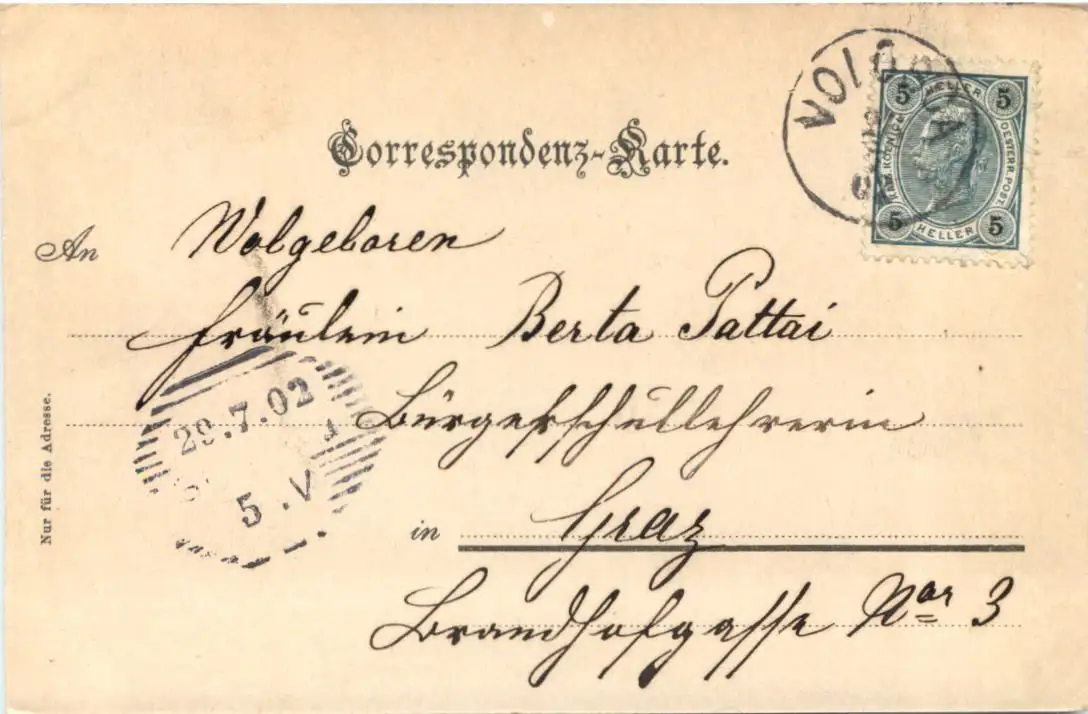 Correspondenz-Karte.
5 HELLER 5
KAIS. KOENIGL. OESTERR. POST.
5 HELLER 5
An Wolgeboren
Fräulein Berta Pattai
29.7.02
Bürgerschullehrerin
5.V
in Graz
Brandhofgasse Nor 3
Nur für die Adresse.